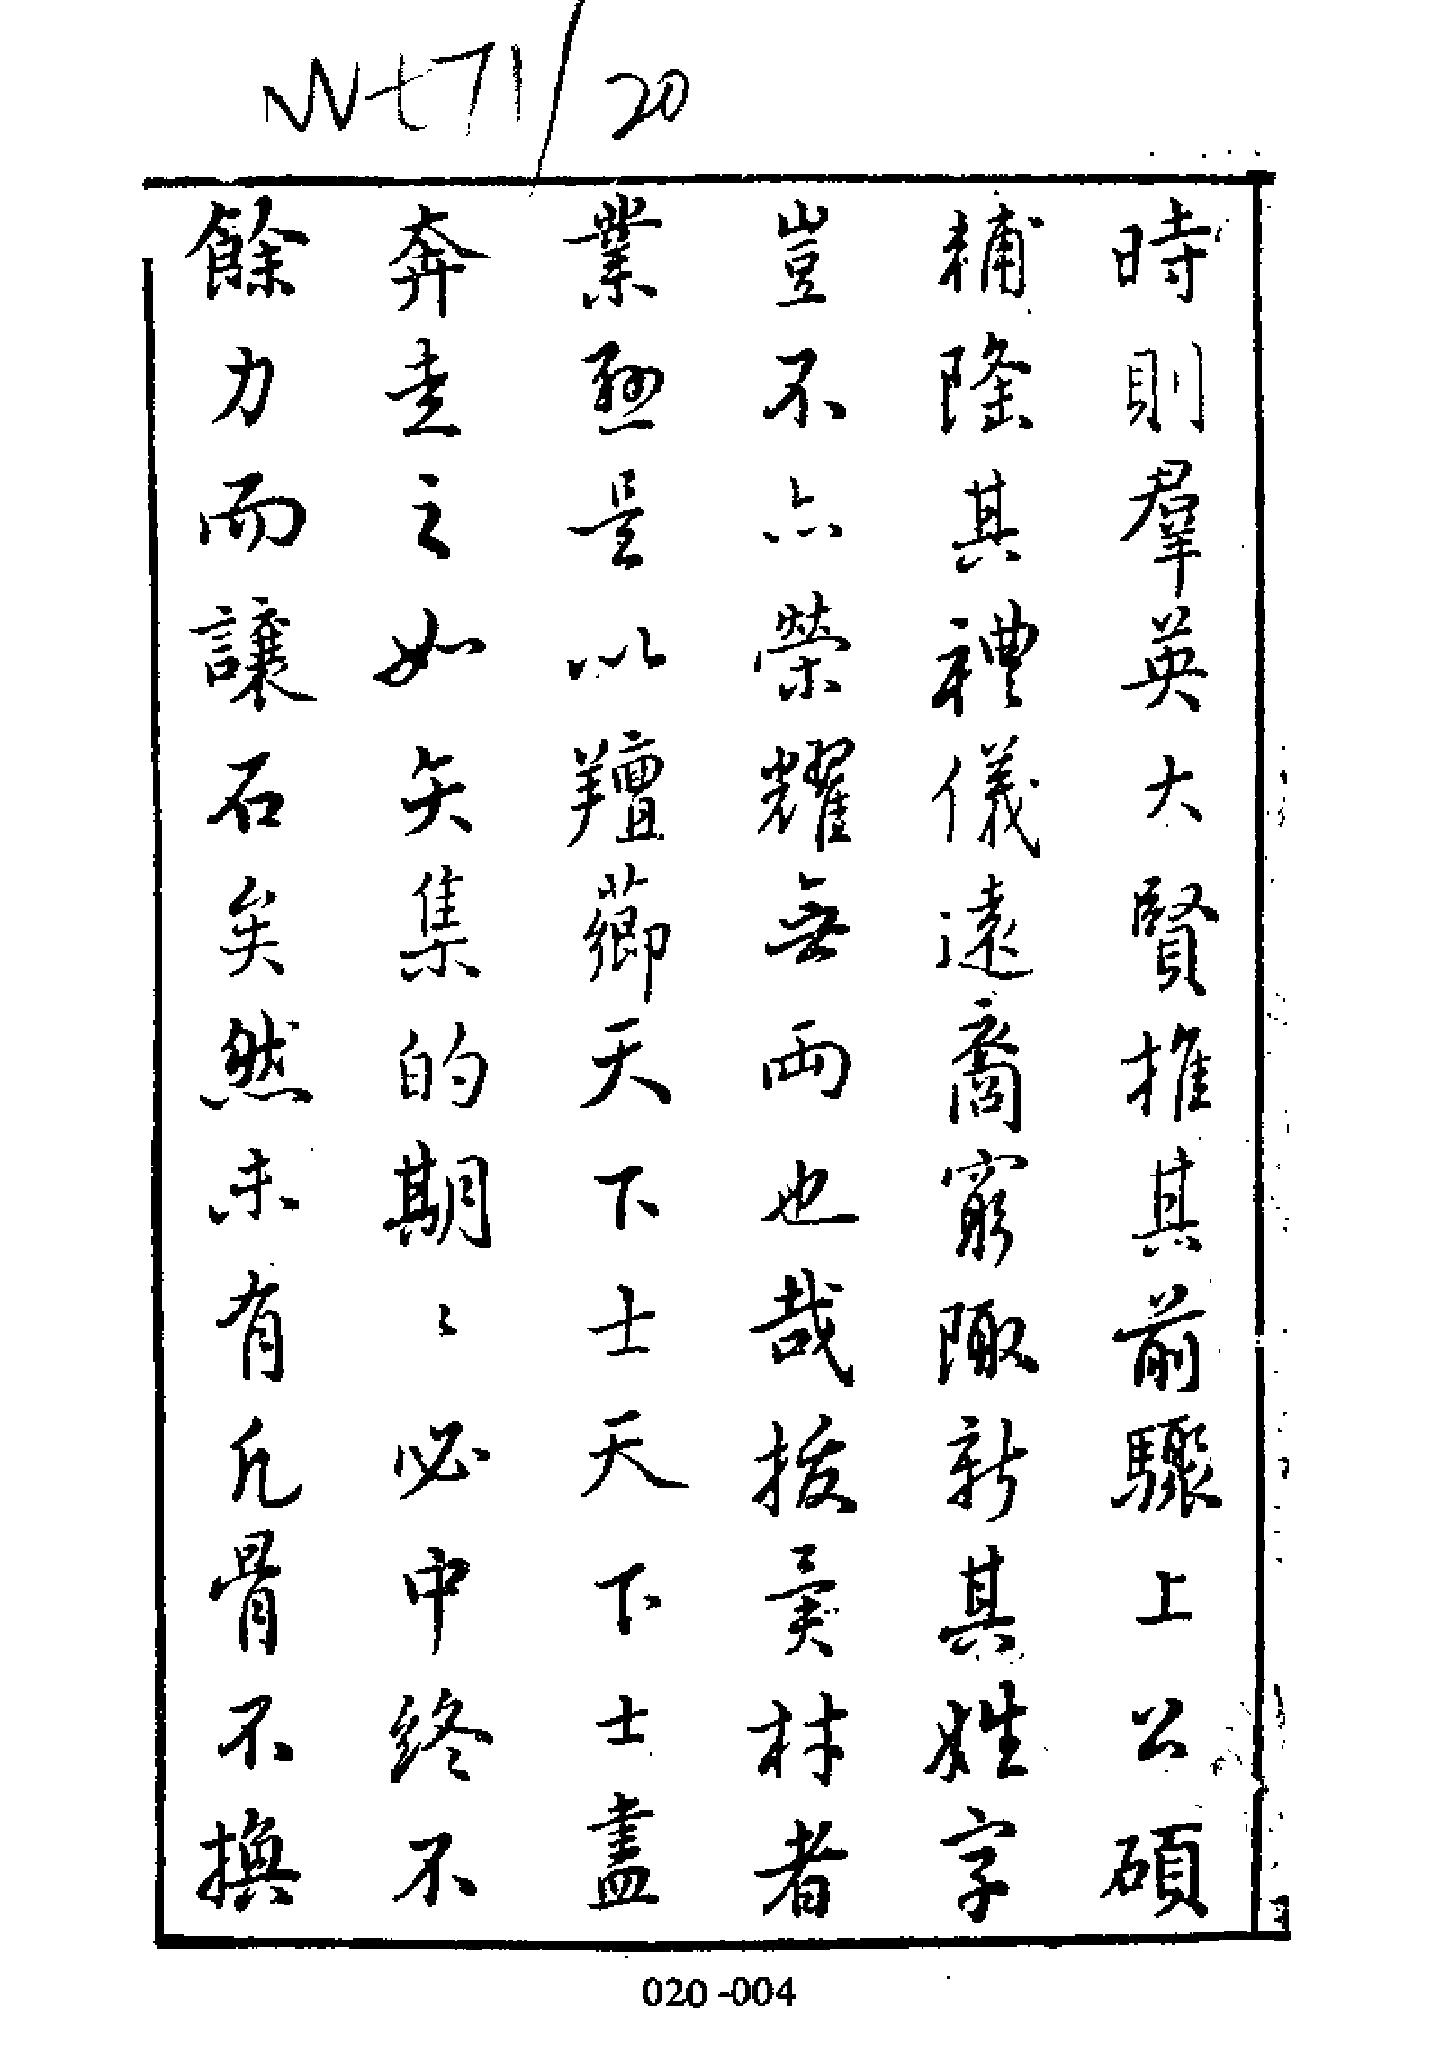 Nt71/20
時則羣英大賢推其前驟上公碩
輔隆其禮儀遠裔窮陬新其姓字
豈不亦榮耀無兩也哉拔異材者
業懸是以羶薌天下士天下士盡
奔走之如矢集的期〻必中終不
餘力而讓石矣然未有凡骨不換
020-004